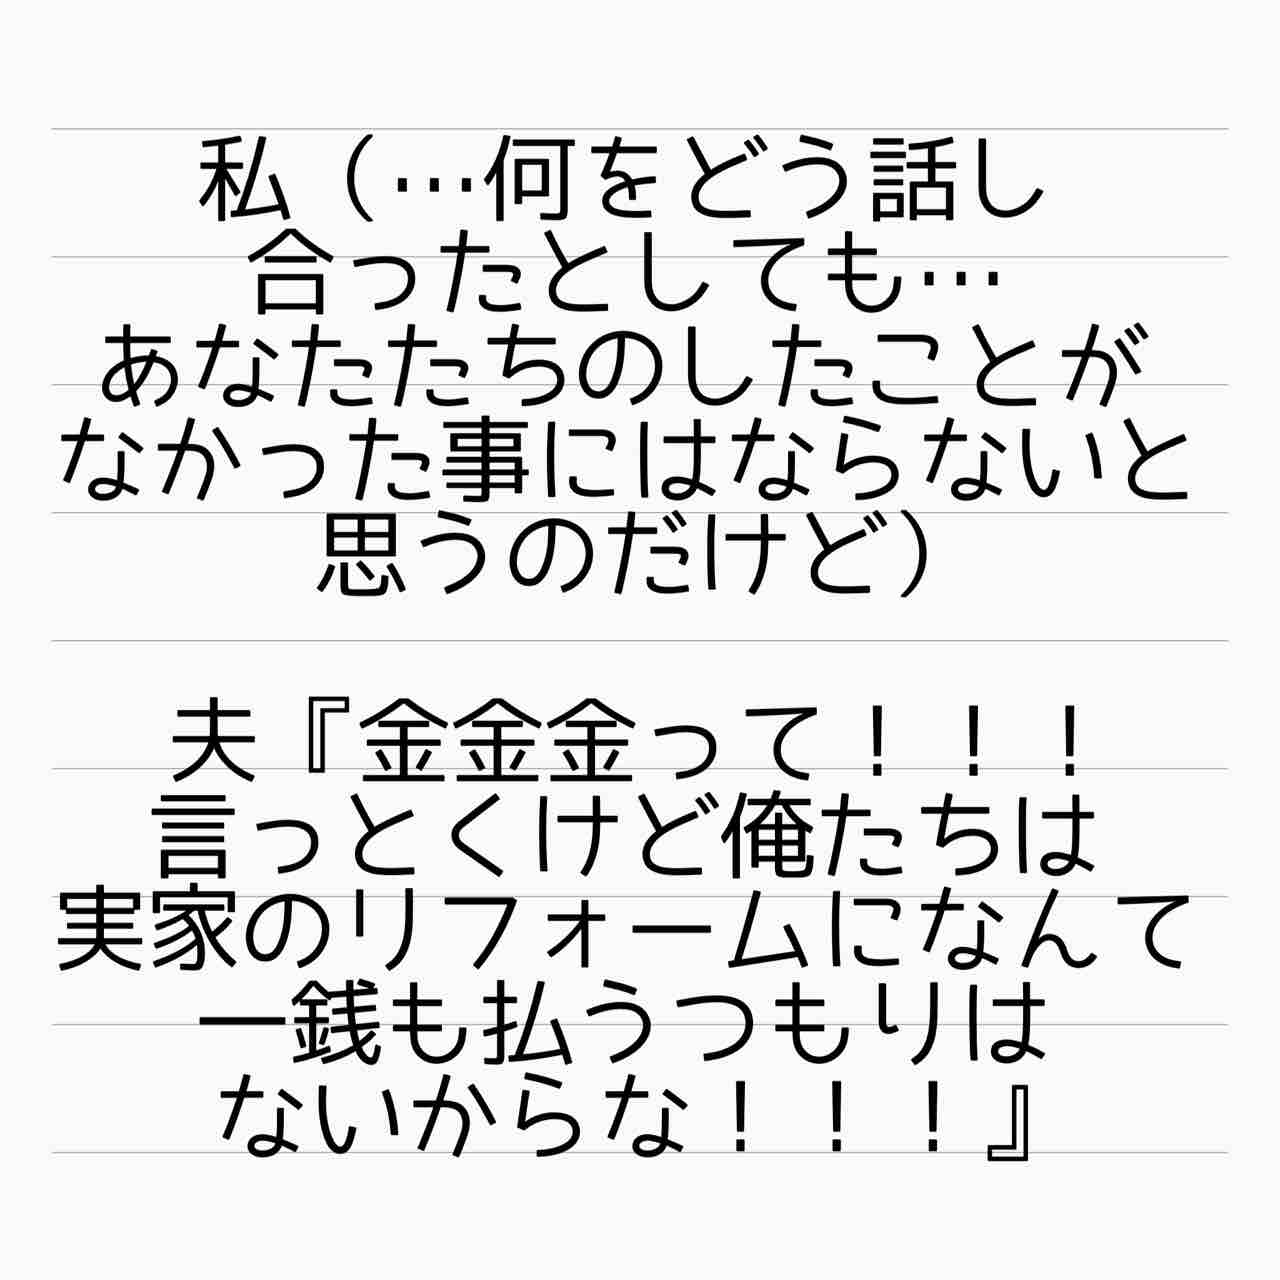 私（…何をどう話し
合ったとしても…
あなたたちのしたことが
なかった事にはならないと
思うのだけど）
夫『金金金って！！！
言っとくけど俺たちは
実家のリフォームになんて
一銭も払うつもりは
ないからな！！！』